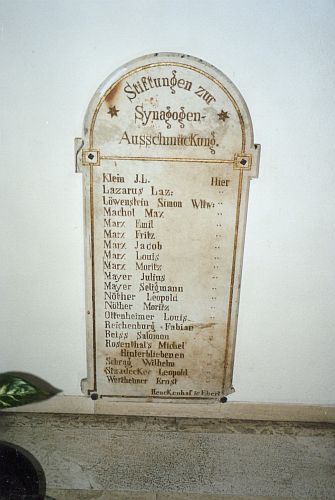 Stiftungen zur
Synagogen-
Ausschmückung.
Klein J.L. Hier
Lazarus Laz: "
Löwenstein Simon Wttw: "
Machol Max "
Marx Emil "
Marx Fritz "
Marx Jacob "
Marx Louis "
Marx Moritz "
Mayer Julius "
Mayer Seligmann "
Nöther Leopold "
Nöther Moritz "
Ottenheimer Louis "
Reichenburg Fabian "
Reiss Salomon "
Rosenthals Michel
Hinterbliebenen "
Schrag Wilhelm "
Staadecker Leopold "
Wertheimer Ernst "
& Ebert